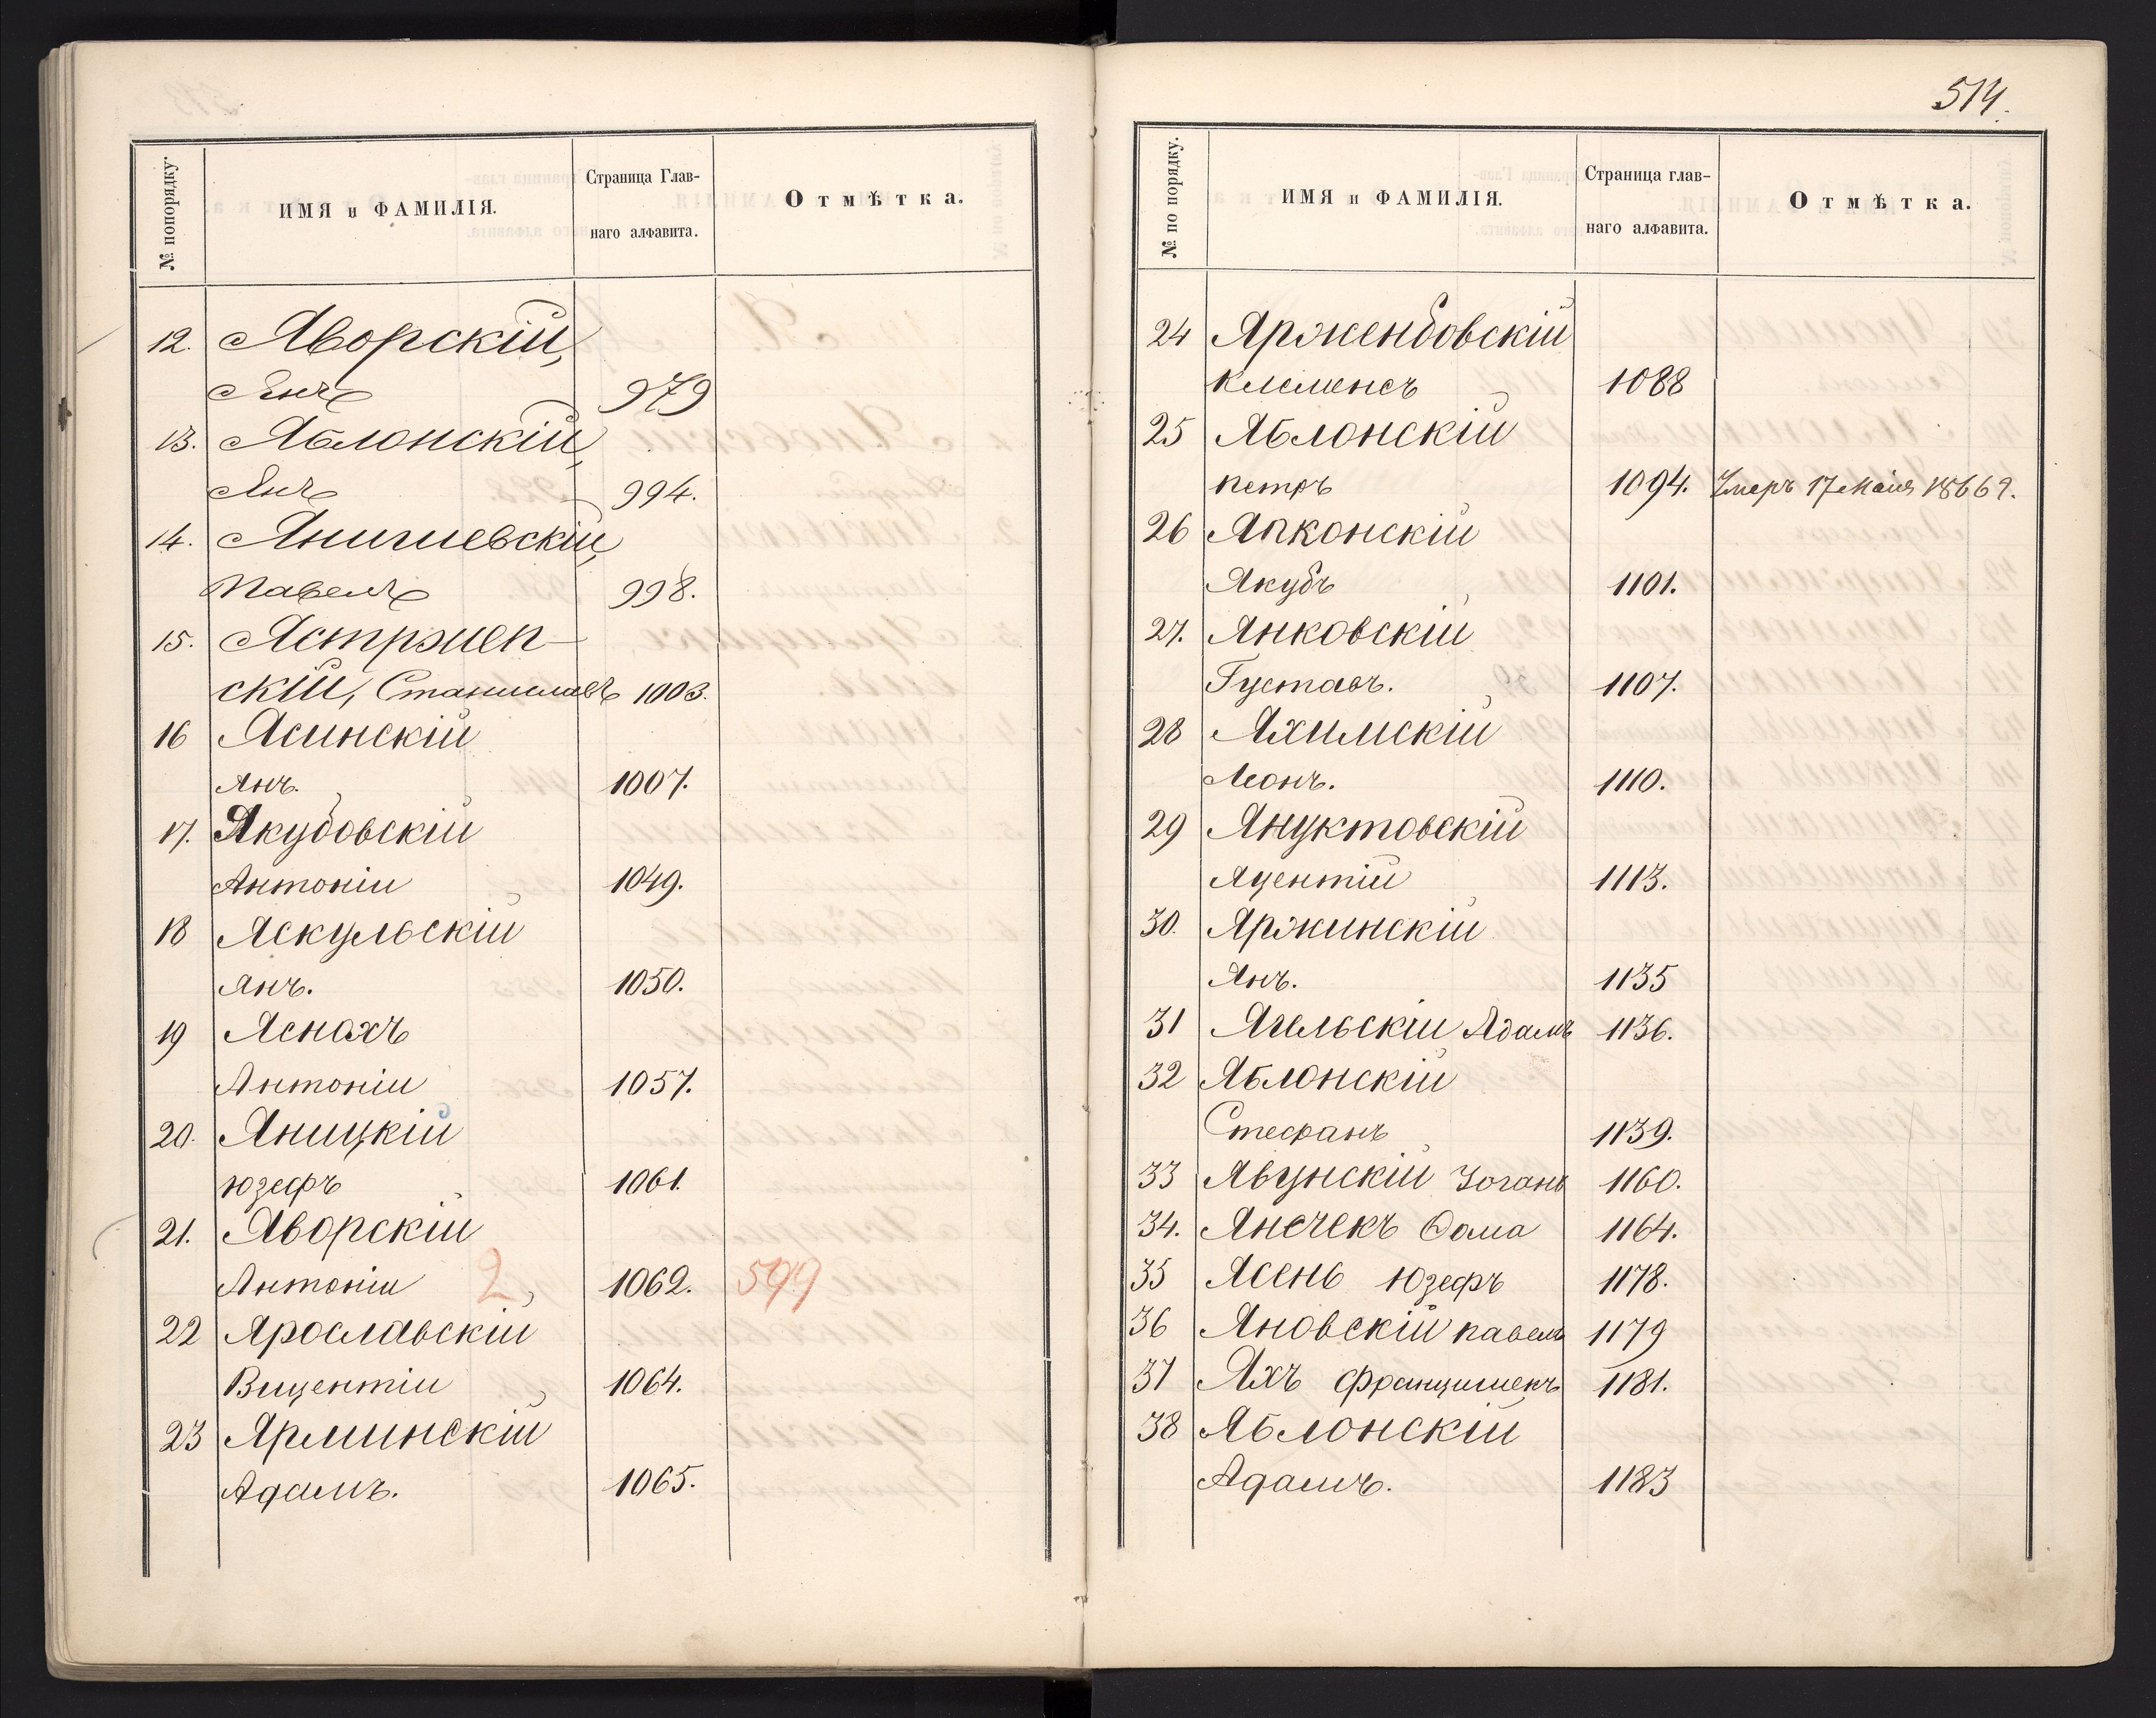 № попорядку.
ИМЯ и ФАМИЛІЯ.
Страница Глав-
наго алфавита.
Отмѣтка.
12. Яворскій,
Янъ 979
13. Яблонскій,
Янъ 994.
14. Янишевскій,
Павелъ 998.
15. Ястржеп-
скій, Станиславъ 1003.
16 Ясинскій
Янъ. 1007.
17. Якубовскій
Антоніи 1049.
18 Яскульскій
Янъ. 1050.
19 Яснахъ
Антоніи 1057.
20. Яницкій
Юзефъ 1061.
21. Яворскій
Антоніи 2 1062. 599
22 Ярославскій
Вицентіи 1064.
23 Ярминскій
Адамъ. 1065.
514.
№ по порядку.
ИМЯ и ФАМИЛІЯ.
Страница глав-
наго алфавита.
Отмѣтка.
24 Ярженбовскій
Клеменсъ 1088
25 Яблонскій
Петръ 1094. Умеръ 17 Мая
26 Япконскій
Якубъ 1101.
27. Янковскій
Густавъ. 1107.
28 Яхимскій
Леонъ. 1110.
29 Януктовскій
Яцентій 1113.
30. Яржинскій
Янъ. 1135
31 Ягельскій Адамъ 1136.
32 Яблонскій
Стефанъ 1139.
33 Явунскій 1160.
34. Янечекъ Фома 1164.
35 Ясень Юзефъ 1178.
36 Яновскій Павелъ 1179
37 Яхъ Францишекъ 1181.
38 Яблонскій
Адамъ. 1183